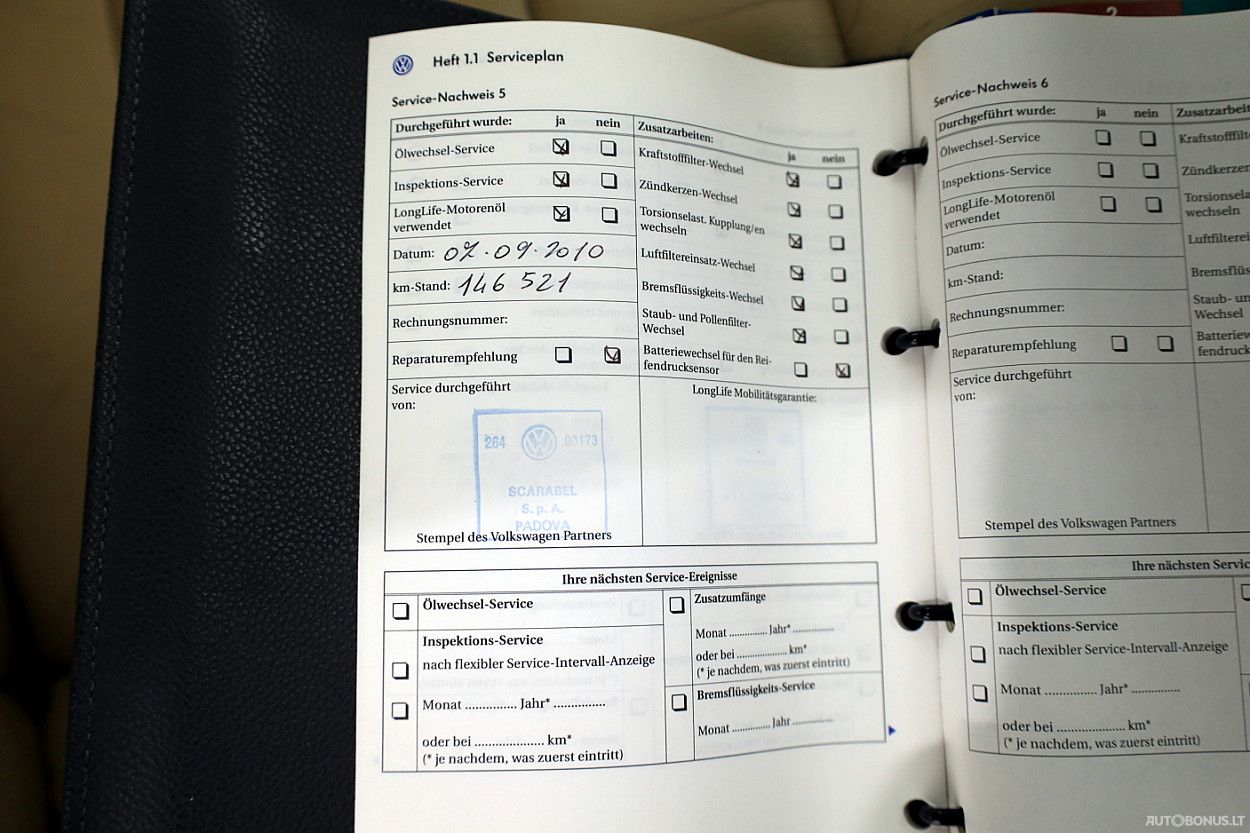 Heft 1.1 Serviceplan
Service-Nachweis 5
Durchgeführt wurde: ja nein
Ölwechsel-Service
Inspektions-Service
LongLife-Motorenöl
verwendet
Datum: 02.09.2010
km-Stand: 146 521
Rechnungsnummer:
Reparaturempfehlung
Service durchgeführt
von:
264 00173
SCARABEL
S.p.A.
PADOVA
Stempel des Volkswagen Partners
Zusatzarbeiten:
ja nein
Kraftstofffilter-Wechsel
Zündkerzen-Wechsel
Torsionselast. Kupplung/en
wechseln
Luftfiltereinsatz-Wechsel
Bremsflüssigkeits-Wechsel
Staub- und Pollenfilter-
Wechsel
Batteriewechsel für den Rei-
fendrucksensor
LongLife Mobilitätsgarantie:
Ihre nächsten Service-Ereignisse
Ölwechsel-Service
Inspektions-Service
nach flexibler Service-Intervall-Anzeige
Monat .............. Jahr* ..............
oder bei ................... km*
(* je nachdem, was zuerst eintritt)
Zusatzumfänge
Monat .............. Jahr* ..............
oder bei ................... km*
(* je nachdem, was zuerst eintritt)
Bremsflüssigkeits-Service
Monat .............. Jahr ..............
Service-Nachweis 6
Durchgeführt wurde: ja nein
Ölwechsel-Service
Inspektions-Service
LongLife-Motorenöl
verwendet
Datum:
km-Stand:
Rechnungsnummer:
Reparaturempfehlung
Service durchgeführt
von:
Stempel des Volkswagen Partners
Zusatzarbeiten
Kraftstofffilt
Zündkerzen
Torsionselast
wechseln
Luftfiltereins
Bremsflüss
Staub- un
Wechsel
Batteriewe
fendrucks
Ihre nächsten Servic
Ölwechsel-Service
Inspektions-Service
nach flexibler Service-Intervall-Anzeige
Monat .............. Jahr* ..............
oder bei ................... km*
(* je nachdem, was zuerst eintritt)
2
AUTOBONUS.LT